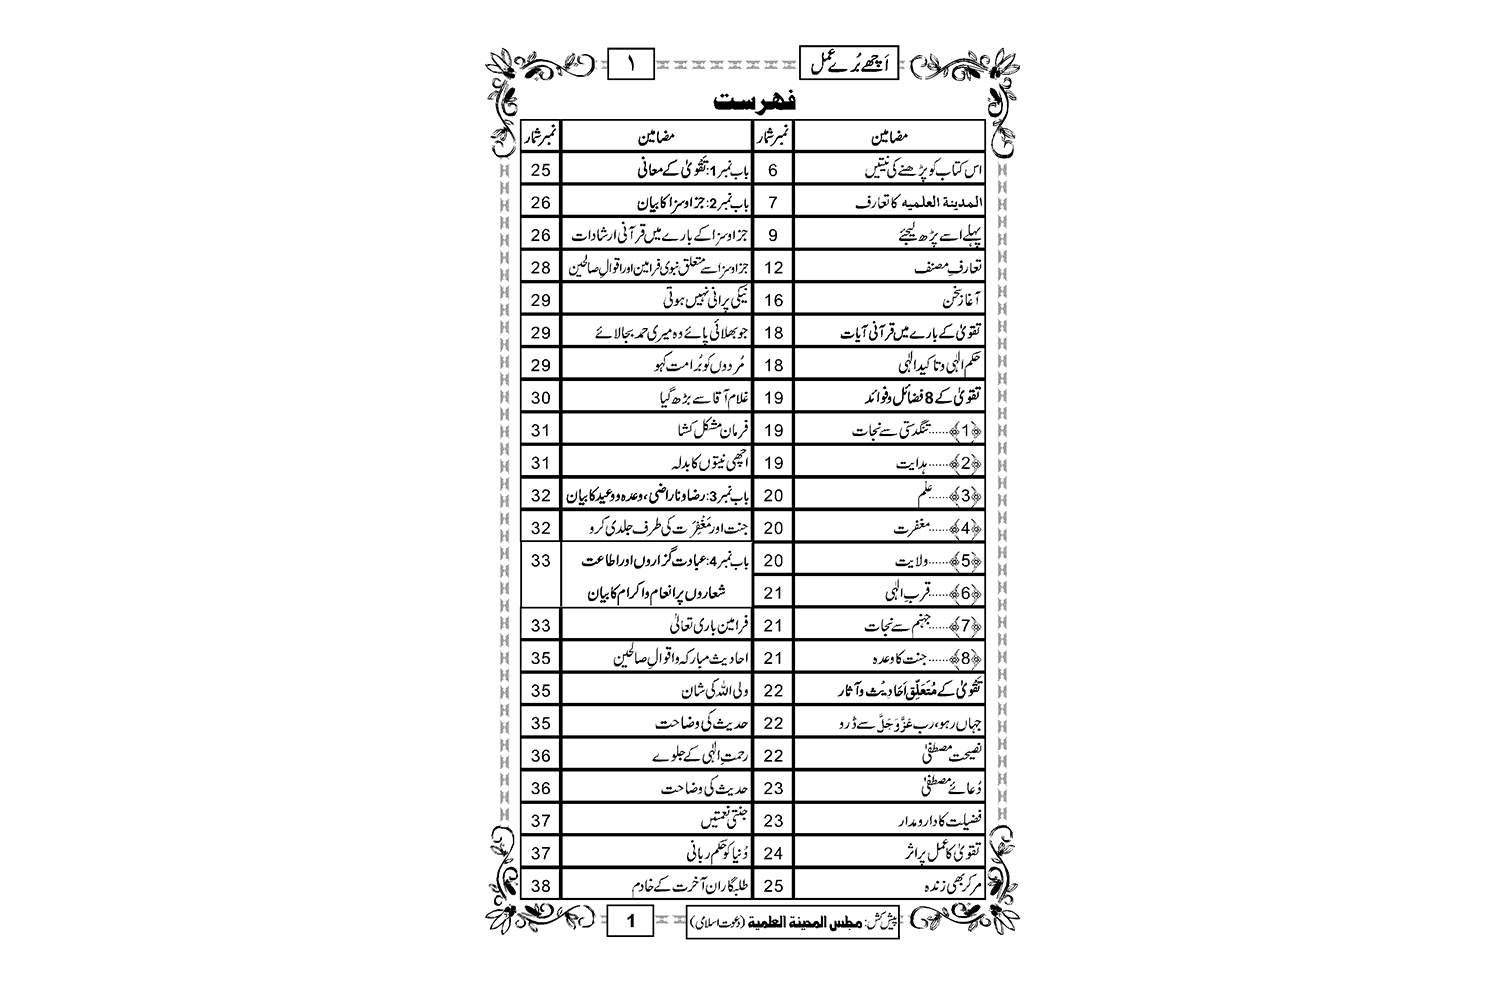 اَچھے بُرے عمل
۱
فهرست
مضامین نمبر شمار مضامین نمبر شمار
اس کتاب کو پڑھنے کی نیتیں 6 باب نمبر 1: تَقْویٰ کے معانی 25
المدینة العلمیه کا تعارف 7 باب نمبر 2: جزاوسزا کا بیان 26
پہلے اسے پڑھ لیجئے 9 جزاوسزا کے بارے میں قرآنی ارشادات 26
تعارفِ مصنف 12 جزاوسزا سے متعلق نبوی فرامین اور اقوالِ صالحین 28
آغازِ سخن 16 نیکی پرانی نہیں ہوتی 29
تقویٰ کے بارے میں قرآنی آیات 18 جو بھلائی پائے وہ میری حمد بجالائے 29
حکم الٰہی و تاکید الٰہی 18 مُردوں کو بُرا مت کہو 29
تقویٰ کے 8 فضائل و فوائد 19 غلام آقا سے بڑھ گیا 30
﴿1﴾......تنگدستی سے نجات 19 فرمان مشکل کشا 31
﴿2﴾......ہدایت 19 اچھی نیتوں کا بدلہ 31
﴿3﴾......علم 20 باب نمبر 3: رضا و ناراضی، وعدہ و وعید کا بیان 32
﴿4﴾......مغفرت 20 جنت اور مَغْفِرَت کی طرف جلدی کرو 32
﴿5﴾......ولایت 20 باب نمبر 4: عبادت گزاروں اور اطاعت 33
﴿6﴾......قربِ الٰہی 21 شعاروں پر انعام و اکرام کا بیان
﴿7﴾......جہنم سے نجات 21 فرامین باری تعالیٰ 33
﴿8﴾......جنت کا وعدہ 21 احادیث مبارکہ و اقوالِ صالحین 35
تَقْویٰ کے مُتَعَلِّق اَحَادِیْث و آثار 22 ولی اللہ کی شان 35
جہاں رہو، رب عَزَّوَجَلَّ سے ڈرو 22 حدیث کی وضاحت 35
نصیحت مصطفیٰ 22 رحمتِ الٰہی کے جلوے 36
دُعائے مصطفیٰ 23 حدیث کی وضاحت 36
فضیلت کا دارومدار 23 جنتی نعمتیں 37
تقویٰ کا عمل پر اثر 24 دُنیا کو حکم ربانی 37
مر کر بھی زندہ 25 طلبگاران آخرت کے خادم 38
پیش کش: مجلس المدينة العلمية (دعوت اسلامی)
1